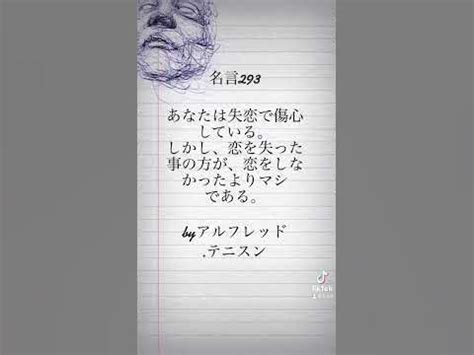 名言293
あなたは失恋で傷心
している。
しかし、恋を失った
事の方が、恋をしな
かったよりマシ
である。
byアルフレッド
.テニスン
TikTok